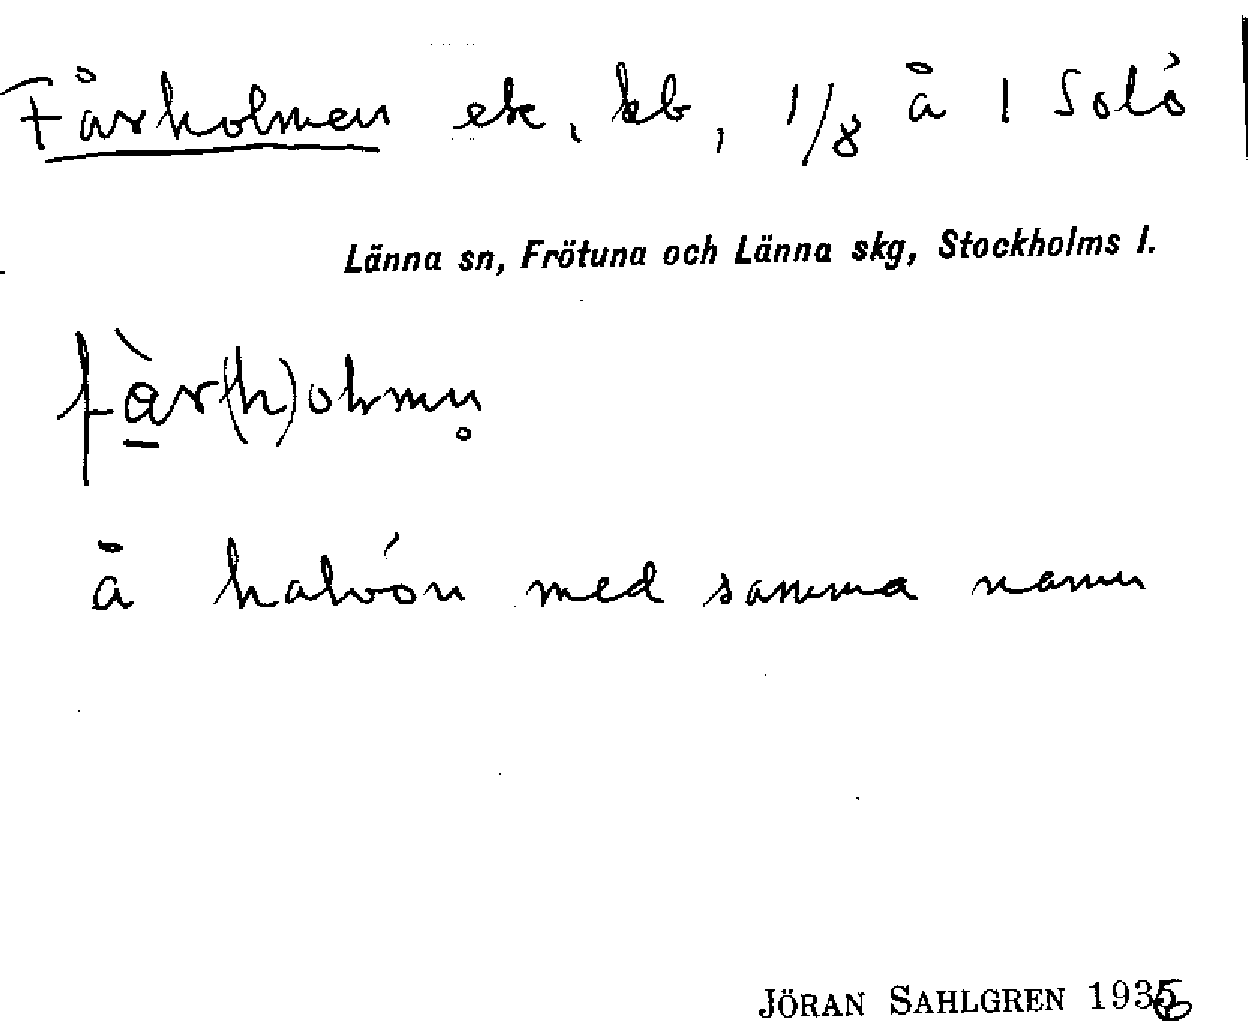 Fårholmen ek, kb, 1/8 å 1 Solö
Länna sn, Frötuna och Länna skg, Stockholms l.
få̀r(h)olmn̥
å halvön med samma namn
JÖRAN SAHLGREN 1936